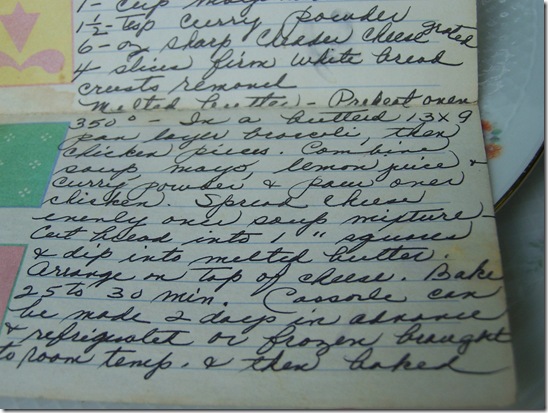 1 - cup mayo
1½ - tsp curry powder
6 - oz sharp chedder cheese grated
4 slices firm white bread
crusts removed
Melted butter - Preheat oven
350° - In a buttered 13x9
pan layer brocoli, then
chicken pieces. Combine
soup, mayo, lemon juice &
curry powder & pour over
chicken. Spread cheese
evenly over soup mixture -
Cut bread into 1" squares
& dip into melted butter.
Arrange on top of cheese. Bake
25 to 30 min. Cassorole can
be made 2 days in advance
& refrigerated or frozen brought
to room temp. & then baked